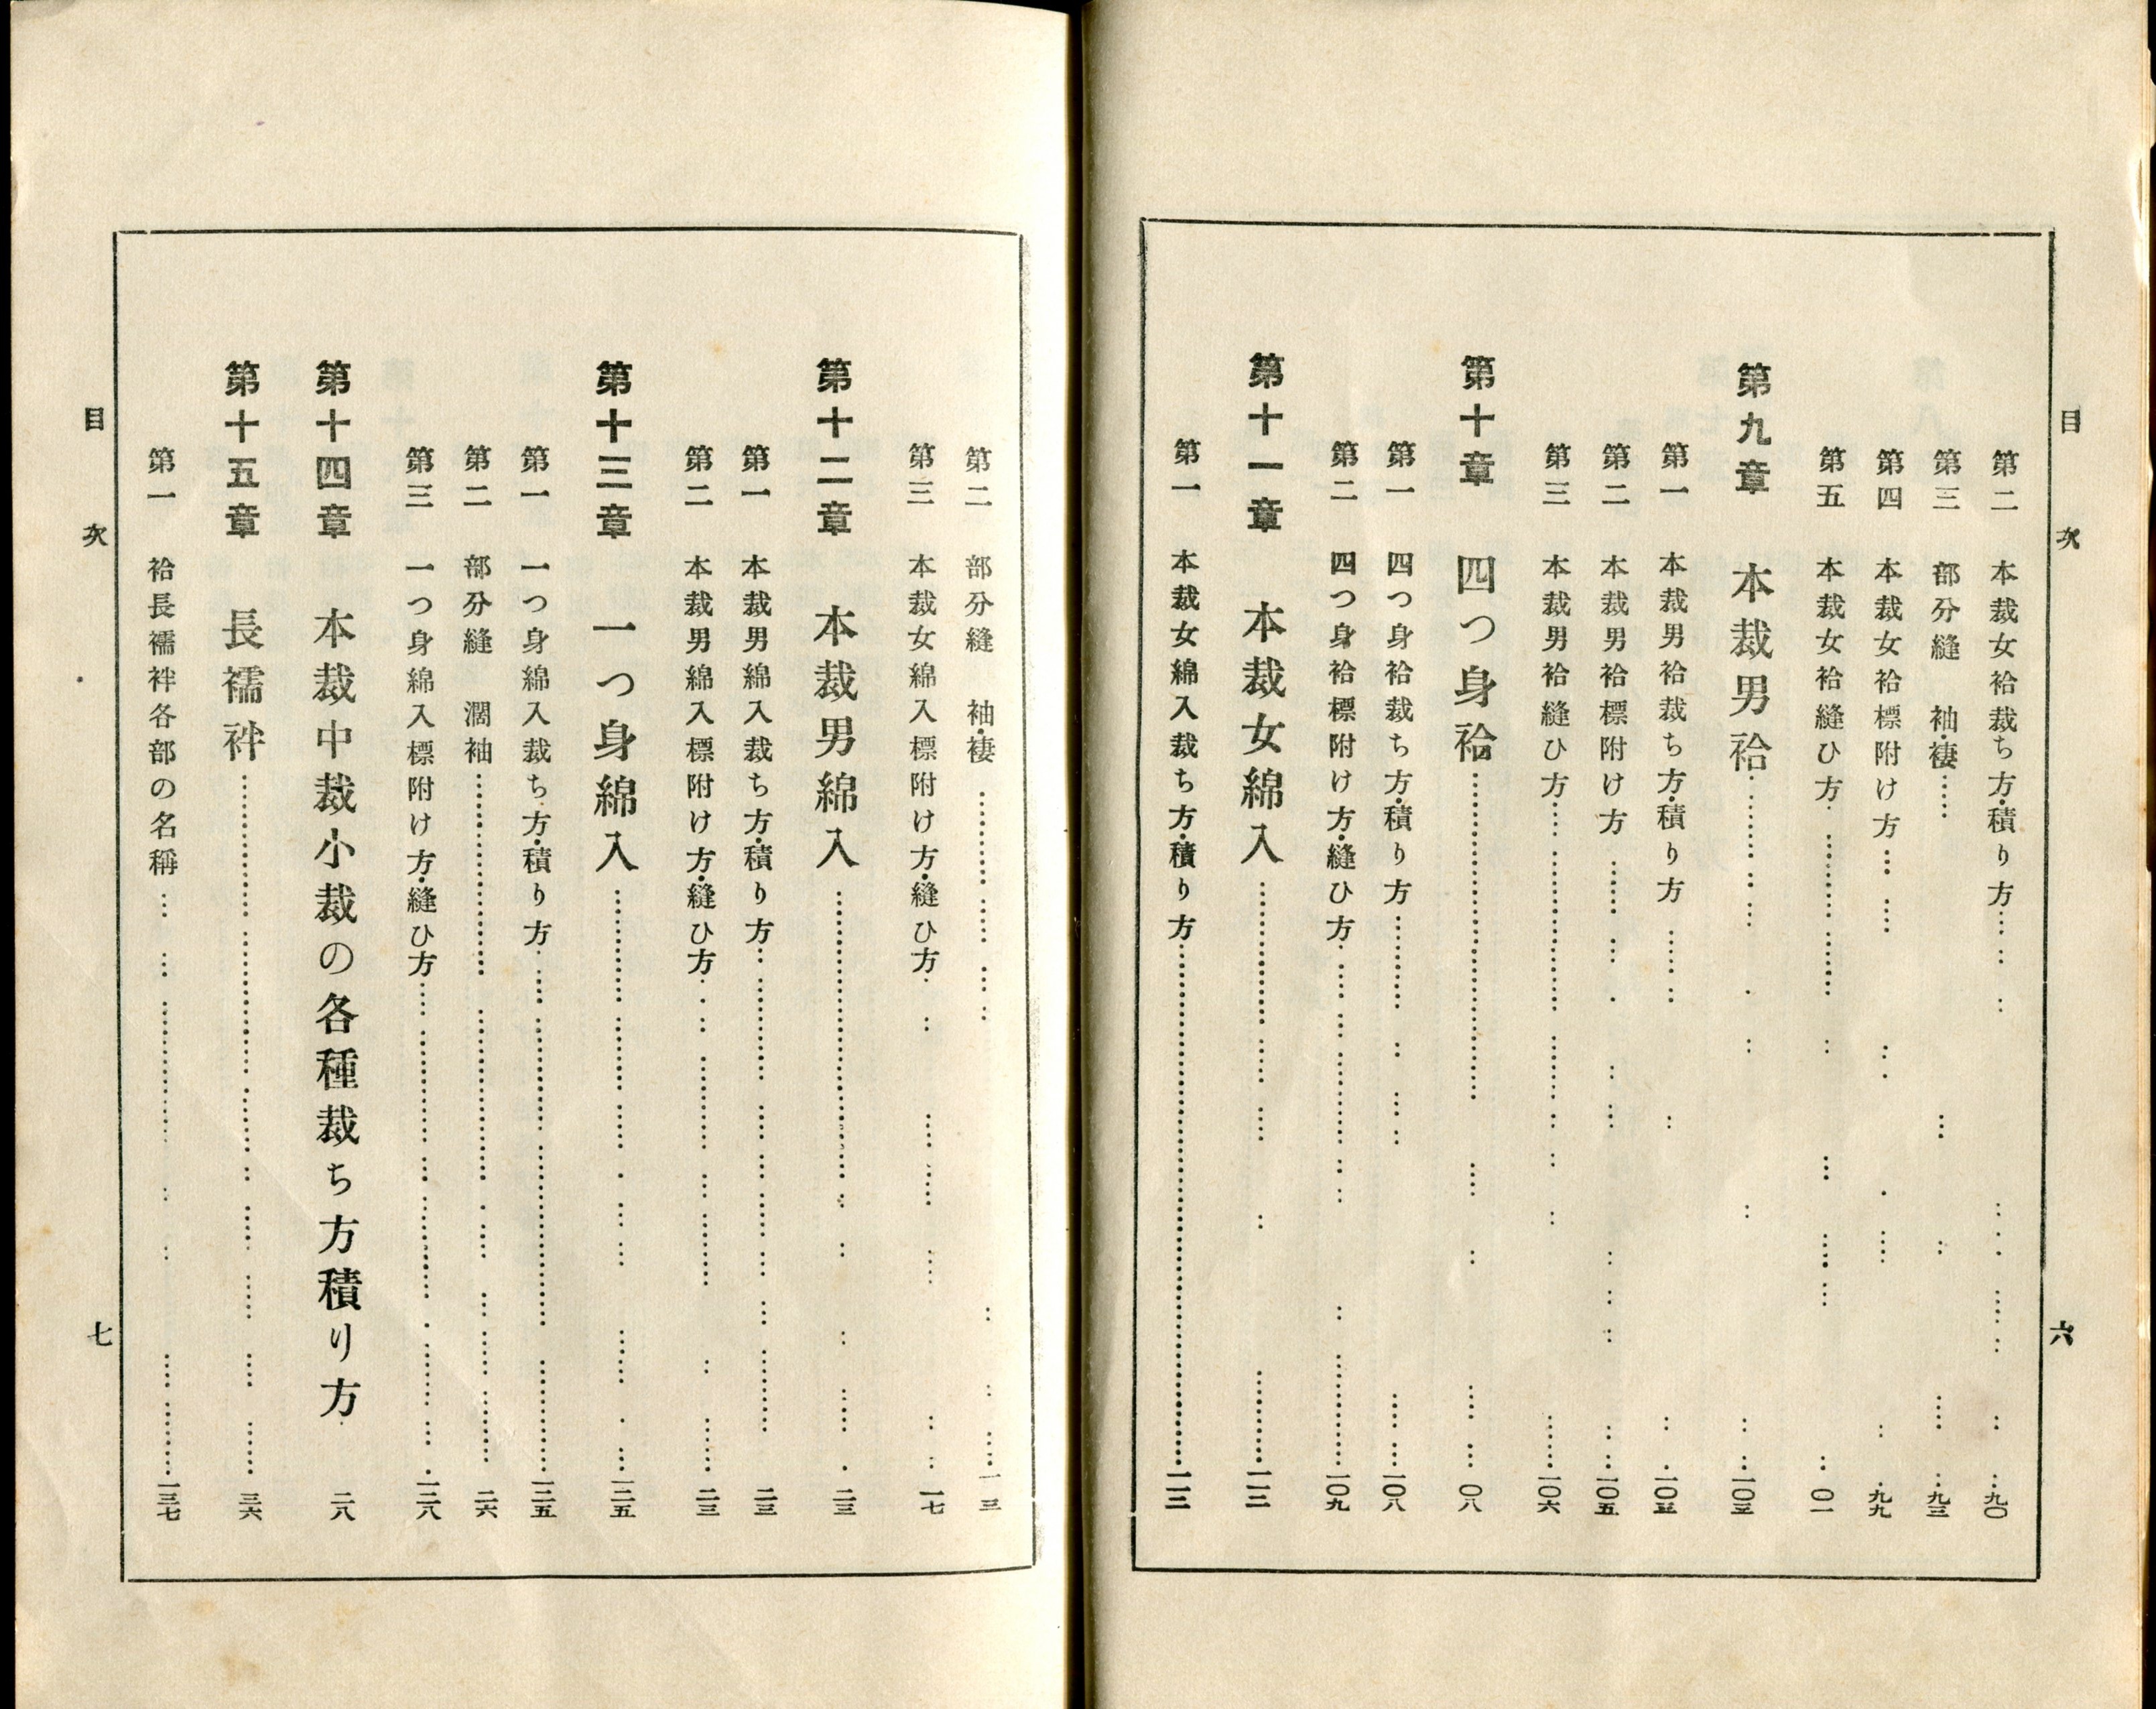 目次
六
第二 本裁女袷裁ち方・積り方……九〇
第三 部分縫 袖・褄……九三
第四 本裁女袷標附け方……九九
第五 本裁女袷縫ひ方……〇一
第九章 本裁男袷……一〇三
第一 本裁男袷裁ち方・積り方……一〇三
第二 本裁男袷標附け方……一〇五
第三 本裁男袷縫ひ方……一〇六
第十章 四つ身袷……〇八
第一 四つ身袷裁ち方・積り方……一〇八
第二 四つ身袷標附け方・縫ひ方……一〇九
第十一章 本裁女綿入……一一三
第一 本裁女綿入裁ち方・積り方……一一三
第二 部分縫 袖・褄……一一三
第三 本裁女綿入標附け方・縫ひ方……一一七
第十二章 本裁男綿入……二三
第一 本裁男綿入裁ち方・積り方……二三
第二 本裁男綿入標附け方・縫ひ方……二三
第十三章 一つ身綿入……一二五
第一 一つ身綿入裁ち方・積り方……一二五
第二 部分縫 濶袖……二六
第三 一つ身綿入標附け方・縫ひ方……一二八
第十四章 本裁中裁小裁の各種裁ち方積り方 二八
第十五章 長襦袢……三六
第一 袷長襦袢各部の名稱……一三七
目次
七